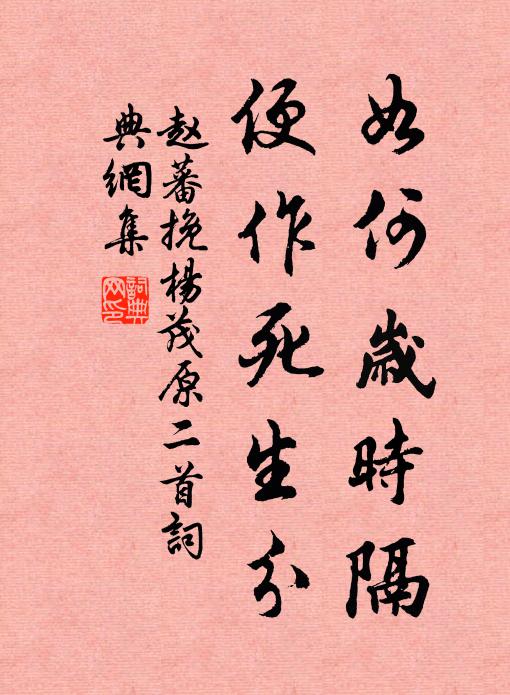 如何歲時隔
便作死生分
赵蕃挽楊茂原二首詞
典網集
詞典
网印